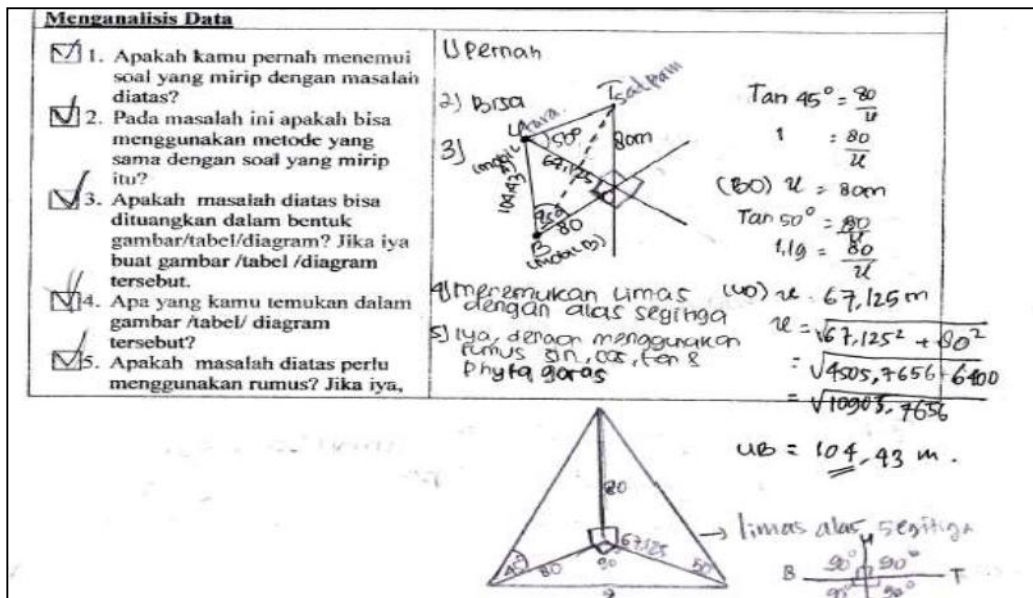 Menganalisis Data
1. Apakah kamu pernah menemui
soal yang mirip dengan masalah
diatas?
2. Pada masalah ini apakah bisa
menggunakan metode yang
sama dengan soal yang mirip
itu?
3. Apakah masalah diatas bisa
dituangkan dalam bentuk
gambar/tabel/diagram? Jika iya
buat gambar /tabel /diagram
tersebut.
4. Apa yang kamu temukan dalam
gambar /tabel/ diagram
tersebut?
5. Apakah masalah diatas perlu
menggunakan rumus? Jika iya,
1) Pernah
2) Bisa
3)
T
satpam
50°
80m
67,125
104,43
80
B
(mobil B)
4) menemukan limas
dengan alas segitiga
5) Iya, dengan menggunakan
rumus sin, cos, tan &
Phytagoras
Tan 45° = 80/x
1 = 80/x
(BO) x = 80m
Tan 50° = 80/x
1,19 = 80/x
(UO) x = 67,125 m
x = √67,125² + 80²
= √4505,7656 + 6400
= √10905,7656
UB = 104,43 m.
80
80
67,125
90
50°
?
→ limas alas segitiga
90° 90°
B T
90° 90°